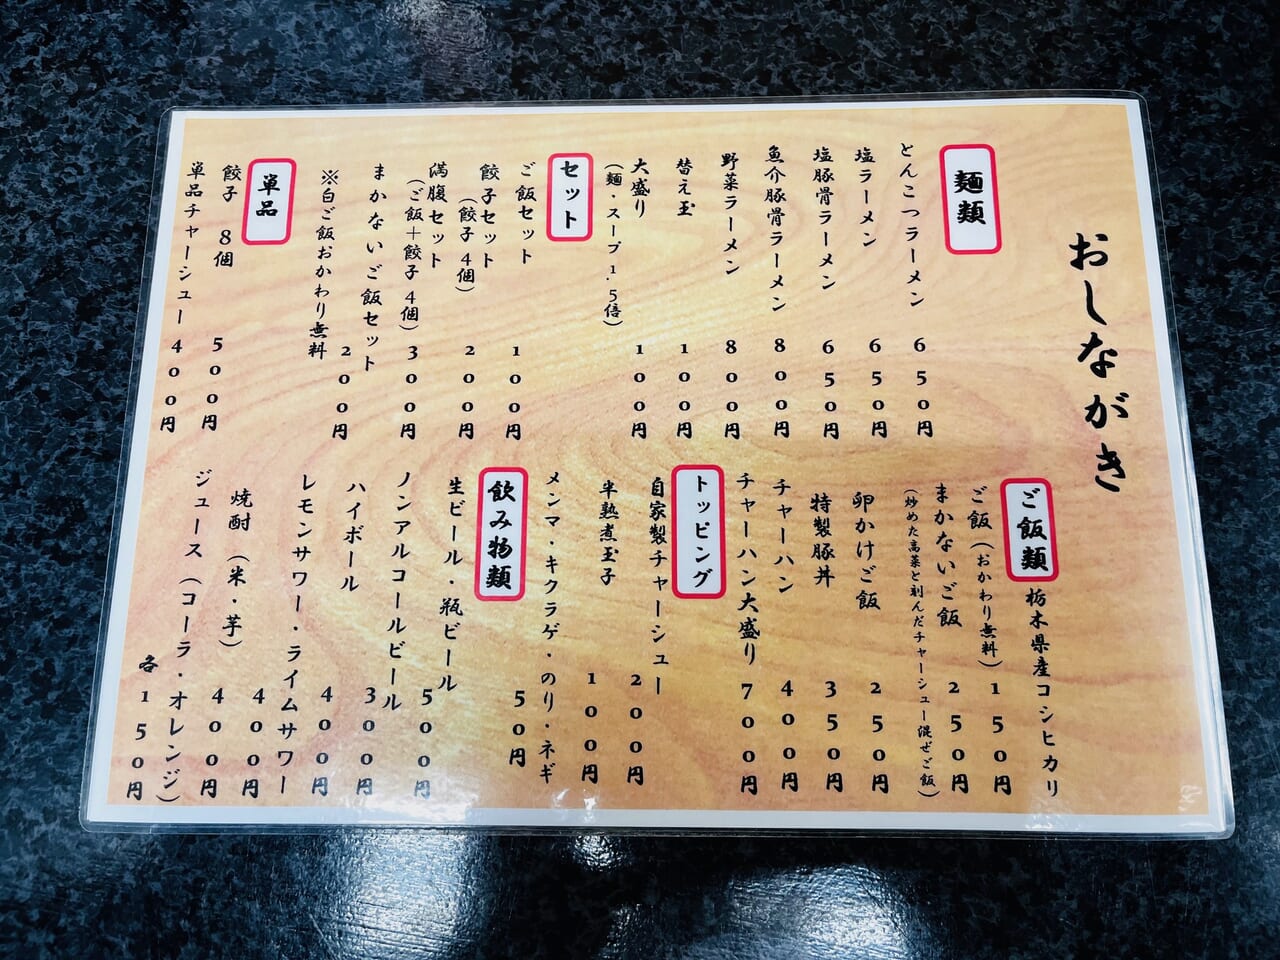 おしながき
麺類
とんこつラーメン 650円
塩ラーメン 650円
塩豚骨ラーメン 650円
魚介豚骨ラーメン 800円
野菜ラーメン 800円
替え玉 100円
大盛り 100円
(麺・スープ1.5倍)
セット
ご飯セット 100円
餃子セット 200円
(餃子4個)
満腹セット 300円
(ご飯+餃子4個)
まかないご飯セット 200円
※白ご飯おかわり無料
単品
餃子 8個 500円
単品チャーシュー 400円
ご飯類 栃木県産コシヒカリ
ご飯(おかわり無料) 150円
まかないご飯 250円
(炒めた高菜と刻んだチャーシュー混ぜご飯)
卵かけご飯 250円
特製豚丼 350円
チャーハン 400円
チャーハン大盛り 700円
トッピング
自家製チャーシュー 200円
半熟煮玉子 100円
メンマ・キクラゲ・のり・ネギ 50円
飲み物類
生ビール・瓶ビール 500円
ノンアルコールビール 300円
ハイボール 400円
レモンサワー・ライムサワー 400円
焼酎(米・芋) 400円
ジュース(コーラ・オレンジ) 各150円